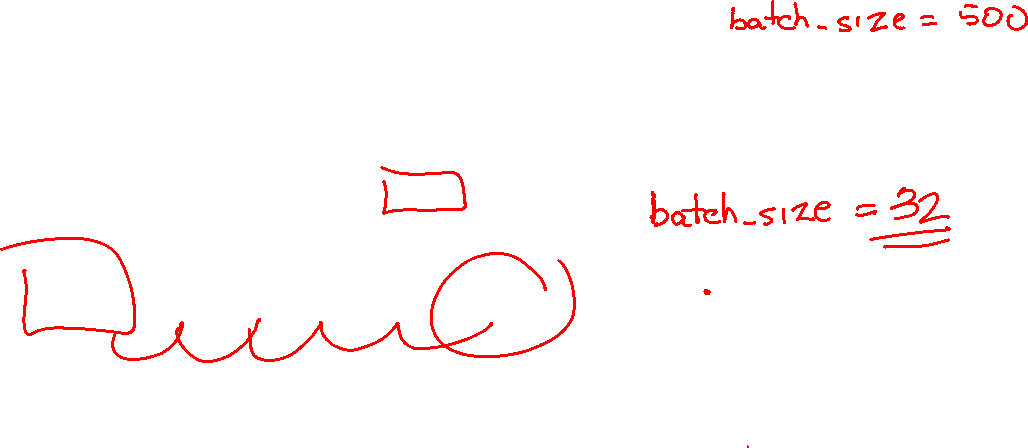 batch_size = 500
batch_size = 32